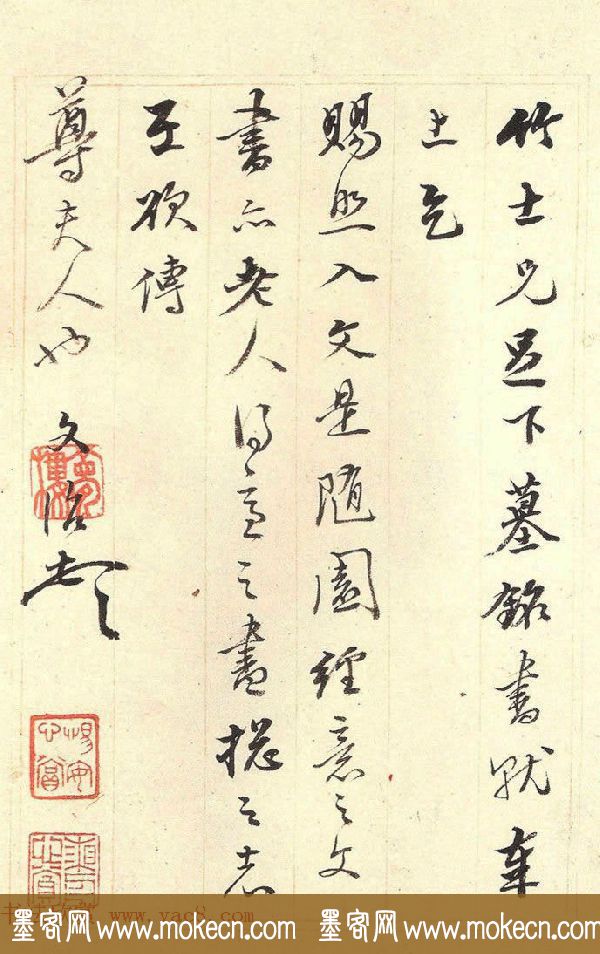 竹士兄足下墓銘書就奉
上乞
賜照入文是隨園經意之文
書亦老人得意之書總之志
在欲傳
尊夫人也 文治頓
www.yac8.com
墨客网 www.mokecn.com 墨客网 www.mokecn.com